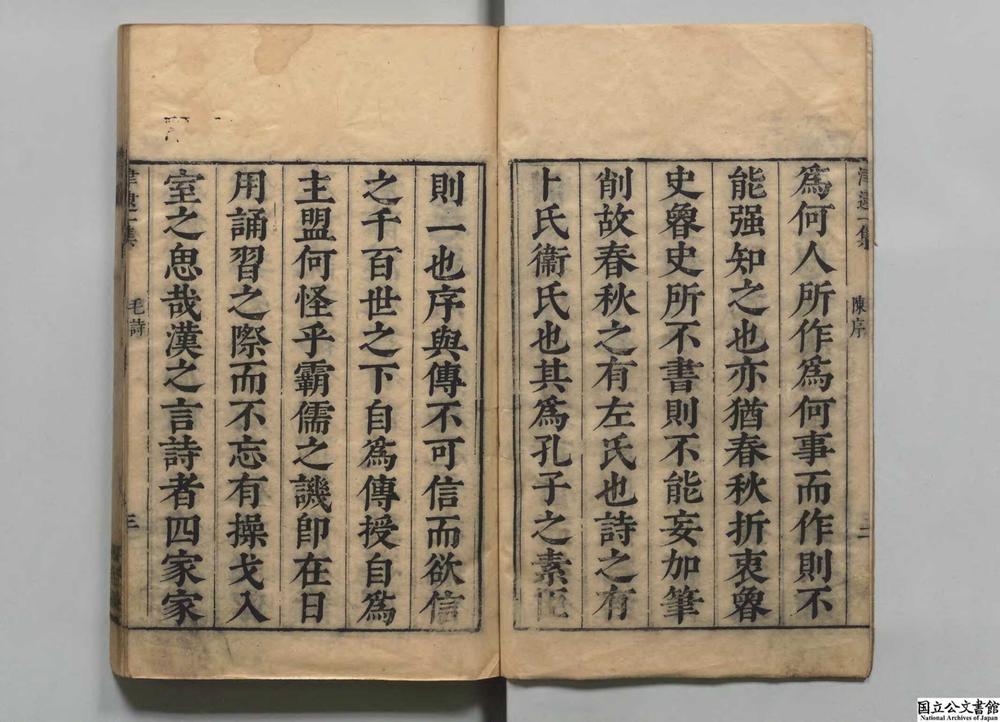 津逮一集
陳序
二
爲何人所作爲何事而作則不
能强知之也亦猶春秋折衷魯
史魯史所不書則不能妄加筆
削故春秋之有左氏也詩之有
卜氏衞氏也其爲孔子之素臣
則一也序與傳不可信而欲信
之千百世之下自爲傳授自爲
主盟何怪乎霸儒之譏卽在日
用誦習之際而不忘有操戈入
室之思哉漢之言詩者四家家
津逮一集
毛詩
三
国立公文書館
National Archives of Japan